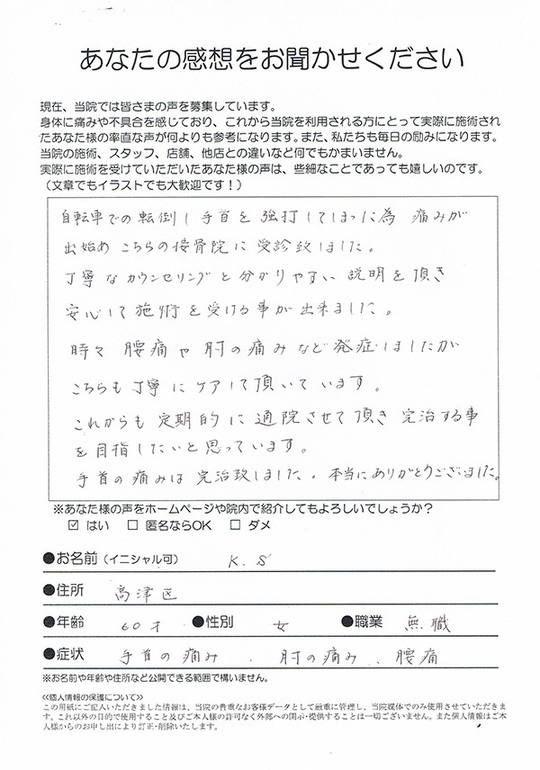 あなたの感想をお聞かせください
現在、当院では皆さまの声を募集しています。
身体に痛みや不具合を感じており、これから当院を利用される方にとって実際に施術され
たあなた様の率直な声が何よりも参考になります。また、私たちも毎日の励みになります。
当院の施術、スタッフ、店舗、他店との違いなど何でもかまいません。
実際に施術を受けていただいたあなた様の声は、些細なことであっても嬉しいのです。
（文章でもイラストでも大歓迎です！）
自転車での転倒し手首を強打してしまった為 痛みが
出始め こちらの接骨院に受診致しました。
丁寧なカウンセリングと分かりやすい説明を頂き
安心して施術を受ける事が出来ました。
時々 腰痛や肘の痛みなど発症しましたが
こちらも丁寧にケアして頂いています。
これからも定期的に通院させて頂き完治する事
を目指したいと思っています。
手首の痛みは完治致しました。本当にありがとうございました。
※あなた様の声をホームページや院内で紹介してもよろしいでしょうか？
☑ はい □ 匿名ならOK □ ダメ
●お名前（イニシャル可） K.S
●住所 高津区
●年齢 60才 ●性別 女 ●職業 無職
●症状 手首の痛み、肘の痛み、腰痛
※お名前や年齢や住所など公開できる範囲で構いません。
≪個人情報の保護について≫
この用紙にご記入いただきました情報は、当院の貴重なお客様データとして厳重に管理し、当院媒体でのみ使用させていただきま
す。これ以外の目的で使用すること及びご本人様の許可なく外部への開示・提供することは一切ございません。また個人情報はご本
人様からのお申し出により訂正・削除いたします。